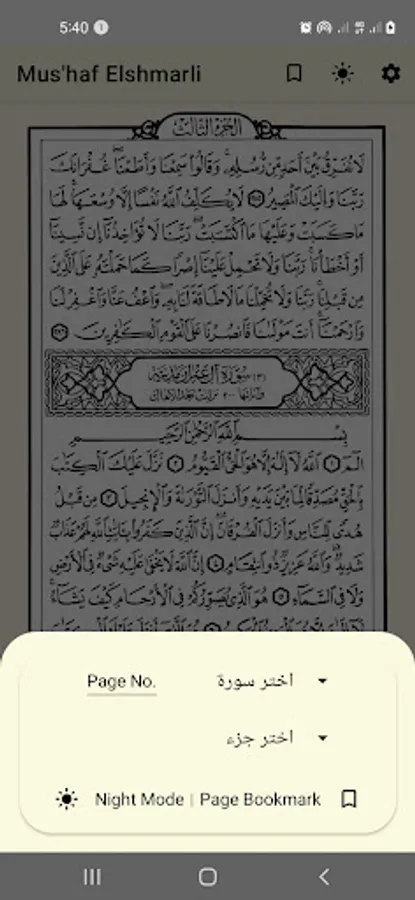 5:40
Mus'haf Elshmarli
الجزء الثالث
لَا نُفَرِّقُ بَيْنَ أَحَدٍ مِّن رُّسُلِهِۦ وَقَالُوا۟ سَمِعْنَا وَأَطَعْنَا غُفْرَانَكَ
رَبَّنَا وَإِلَيْكَ الْمَصِيرُ ٢٨٥ لَا يُكَلِّفُ اللَّهُ نَفْسًا إِلَّا وُسْعَهَا لَهَا
مَا كَسَبَتْ وَعَلَيْهَا مَا اكْتَسَبَتْ رَبَّنَا لَا تُؤَاخِذْنَا إِن نَّسِينَا
أَوْ أَخْطَأْنَا رَبَّنَا وَلَا تَحْمِلْ عَلَيْنَا إِصْرًا كَمَا حَمَلْتَهُ عَلَى الَّذِينَ
مِن قَبْلِنَا رَبَّنَا وَلَا تُحَمِّلْنَا مَا لَا طَاقَةَ لَنَا بِهِ وَاعْفُ عَنَّا وَاغْفِرْ لَنَا
وَارْحَمْنَا أَنتَ مَوْلَانَا فَانصُرْنَا عَلَى الْقَوْمِ الْكَافِرِينَ ٢٨٦
(٣) سورة آل عمران مدنية
وآياتها ٢٠٠ نزلت بعد الأنفال
بِسْمِ اللَّهِ الرَّحْمَٰنِ الرَّحِيمِ
الٓمٓ ١ اللَّهُ لَا إِلَٰهَ إِلَّا هُوَ الْحَيُّ الْقَيُّومُ ٢ نَزَّلَ عَلَيْكَ الْكِتَابَ
بِالْحَقِّ مُصَدِّقًا لِّمَا بَيْنَ يَدَيْهِ وَأَنزَلَ التَّوْرَاةَ وَالْإِنجِيلَ ٣ مِن قَبْلُ
هُدًى لِّلنَّاسِ وَأَنزَلَ الْفُرْقَانَ إِنَّ الَّذِينَ كَفَرُوا بِآيَاتِ اللَّهِ لَهُمْ عَذَابٌ
شَدِيدٌ وَاللَّهُ عَزِيزٌ ذُو انتِقَامٍ ٤ إِنَّ اللَّهَ لَا يَخْفَىٰ عَلَيْهِ شَيْءٌ فِي الْأَرْضِ
وَلَا فِي السَّمَاءِ ٥ هُوَ الَّذِي يُصَوِّرُكُمْ فِي الْأَرْحَامِ كَيْفَ يَشَاءُ
Page No. اختر سورة
اختر جزء
Night Mode | Page Bookmark